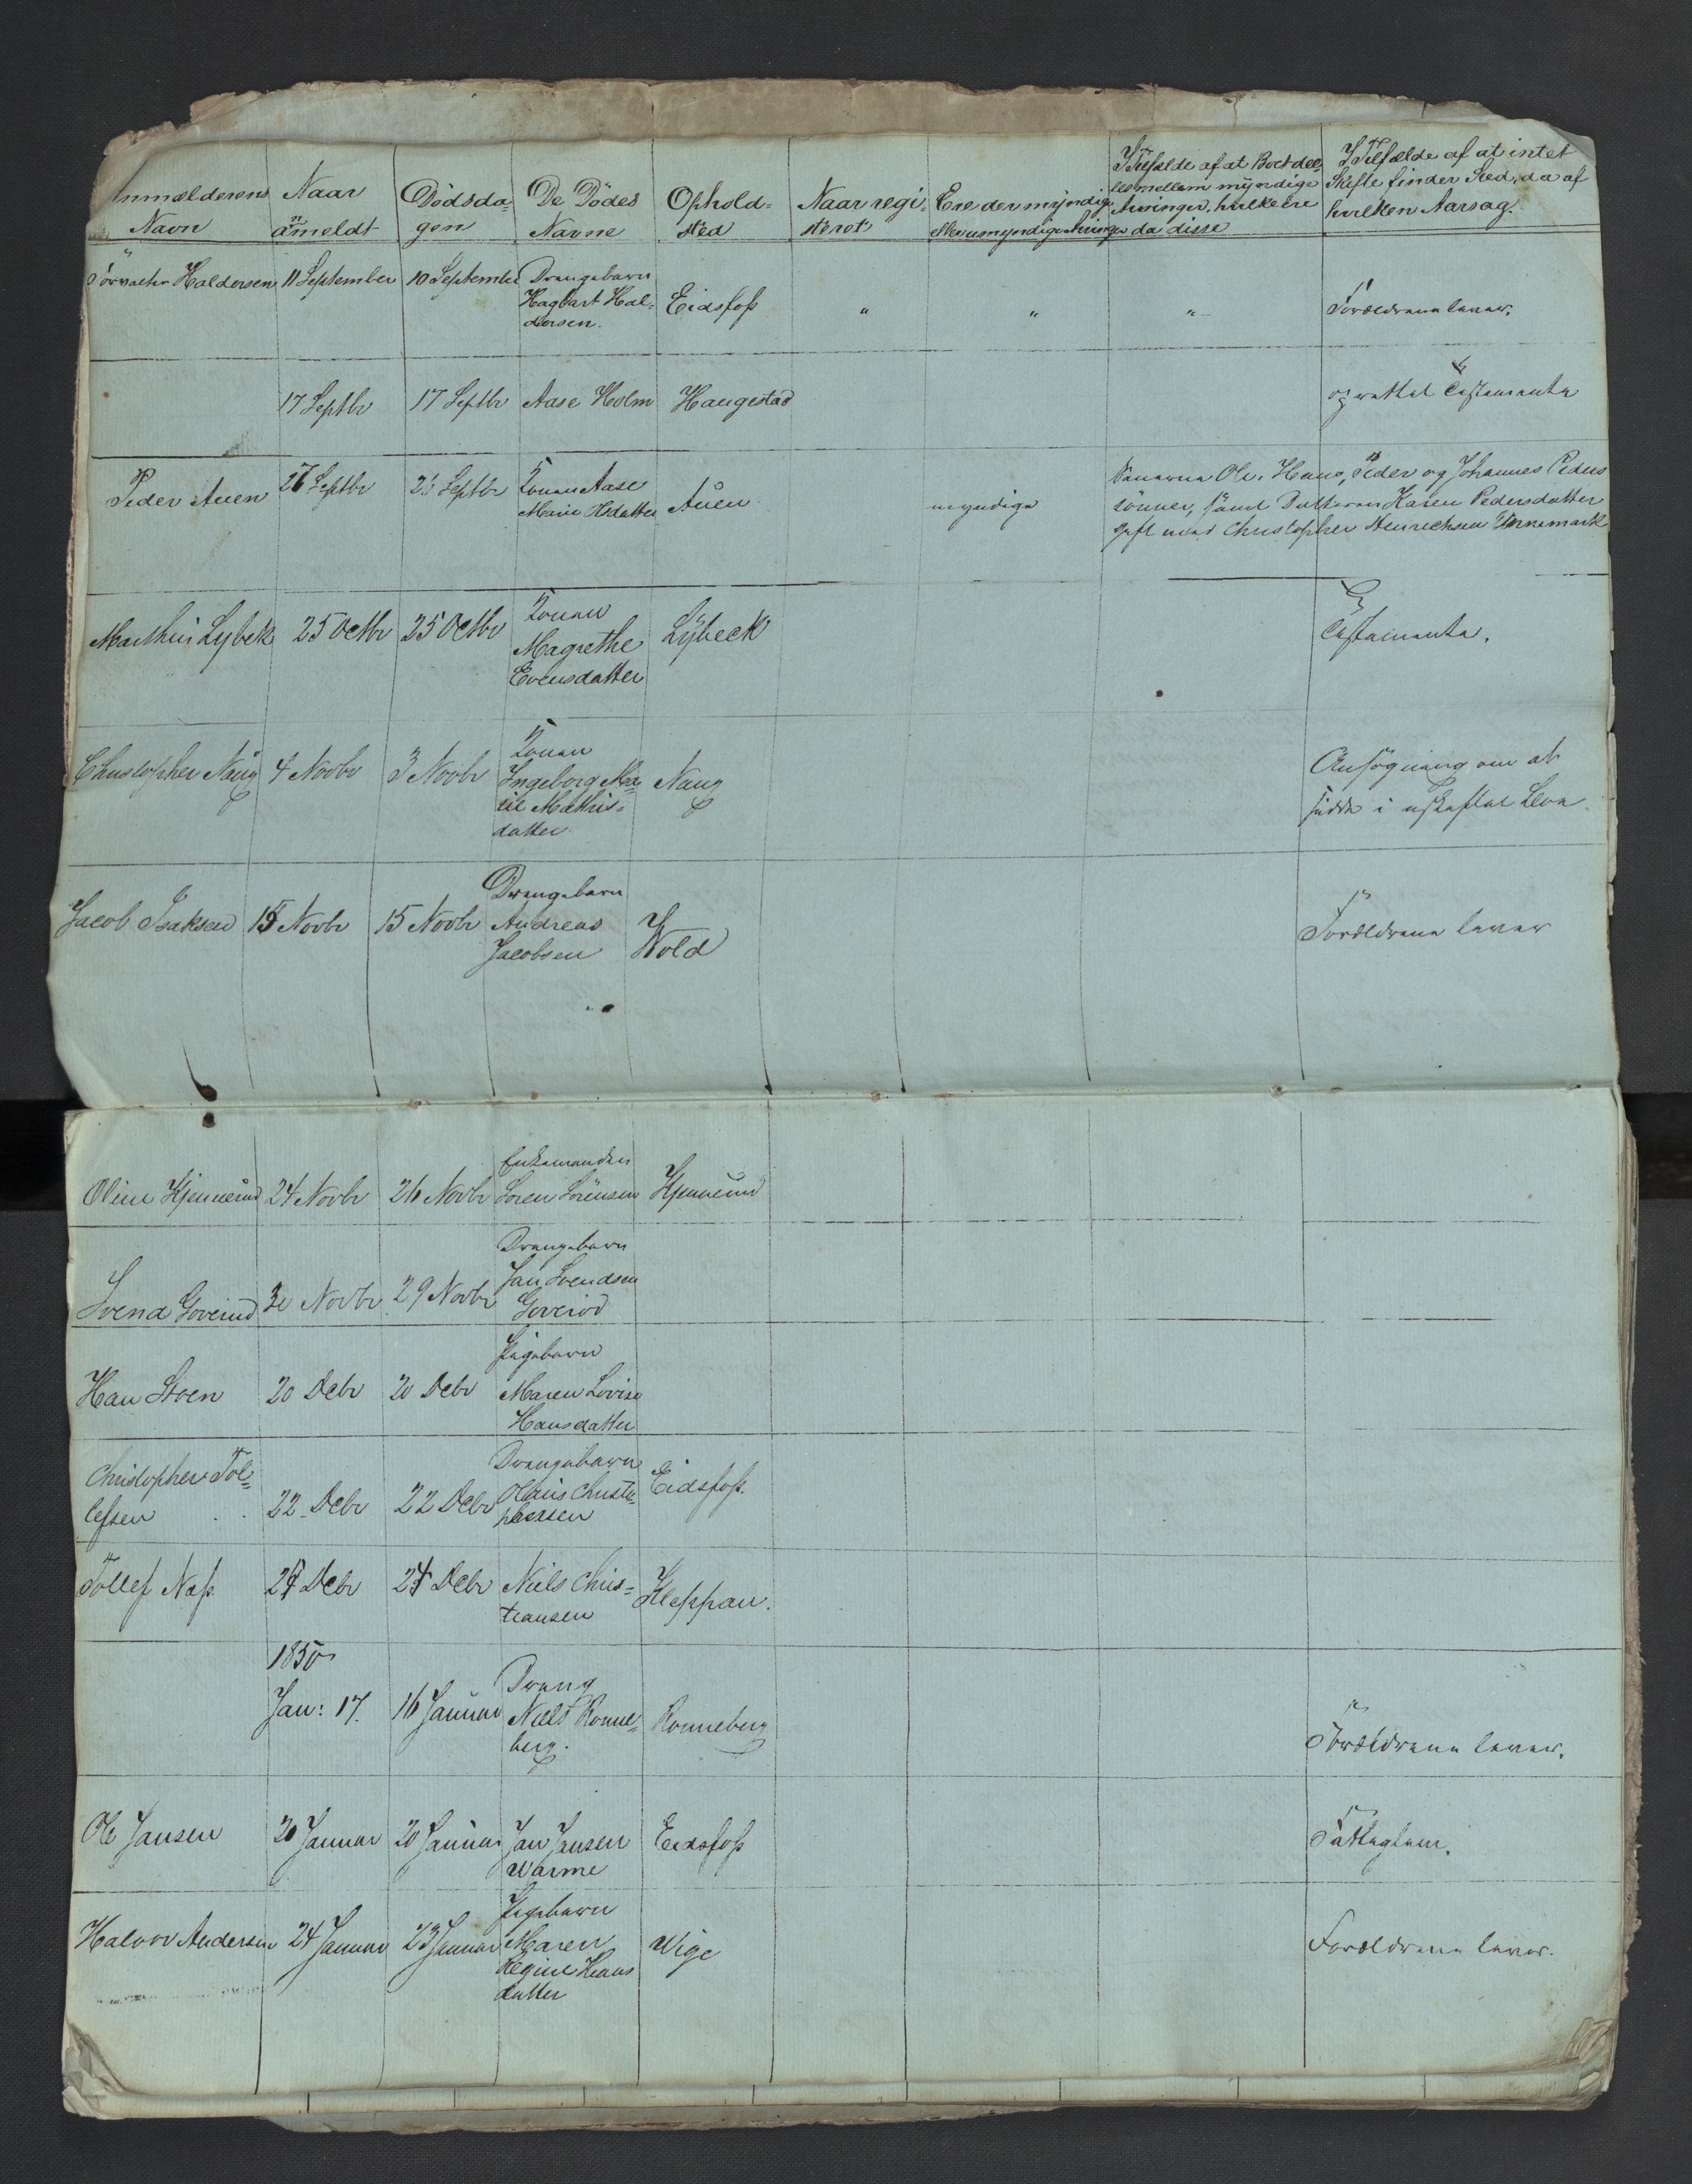 Anmælderens Navn | Naar anmeldt | Dödsdagen | De Dödes Navne | Ophold=sted | Naar registeret | Ere der myndige eller umyndige Arvinger | I Tilfælde af at Boet deeles mellem myndige Arvinger, hvilke ere da disse | I Tilfælde af at intet Skifte finder Sted, da af hvilken Aarsag.
Haldorsen | 11 September | 10 September | Drengebarn
Hagbart Hal=
dorsen. | Eidsfoss | " | " | " | Forældrene lever.
17 Septbr | 17 Septbr | Aase Holm | Haugestad | oprettet Testamente
Peder Auen | 26 Septbr | 26 Septbr | Konen Aase
Marie | Auen | myndige | Sönnerne Ole, Hans, Peder og Johannes Peders
sönner, samt Datteren Karen Pedersdatter
gift med Christopher Henrichsen
Mathis Lybek | 25 Octbr | 25 Octbr | Konen
Magrethe
Evensdatter | Lybeck | Testamente.
Christopher Naug | 4 Novbr | 3 Novbr | Konen
Ingeborg Ma=
rie Mathis=
datter | Naug | Ansögning om at
sidde i uskiftet Boe
Jacob Isaksen | 15 Novbr | 15 Novbr | Drengebarn
Andreas
Jacobsen | Wold | Forældrene lever
Oline Hjennerud | 24 Novbr | 26 Novbr | Enkemanden
Soren Sörensen | Hjennerud
Svend Goverud | 30 Novbr | 29 Novbr | Drengebarn
Jan Svendsen
Goverud
Han Stoen | 20 Debr | 20 Debr | Pigebarn
Maren Lovise
Hansdatter
Christopher Tol=
lefsen | 22 Debr | 22 Debr | Drengebarn
Olaus Christo=
phersen | Eidsfoss.
Tollef Næss | 24 Debr | 24 Debr | Niels Chris=
tiansen | Kleppan.
1850
Jan: 17. | 16 Januar | Dreng
Niels Ronne=
berg. | Ronneberg | Forældrene lever.
Ole Jansen | 20 Januar | 20 Januar | Jan Jansen
Warme | Eidsfoss | Fattiglem.
Halvor Andersen | 24 Januar | 23 Januar | Pigebarn
Maren
Regine Hans
datter | Wige | Forældrene lever.